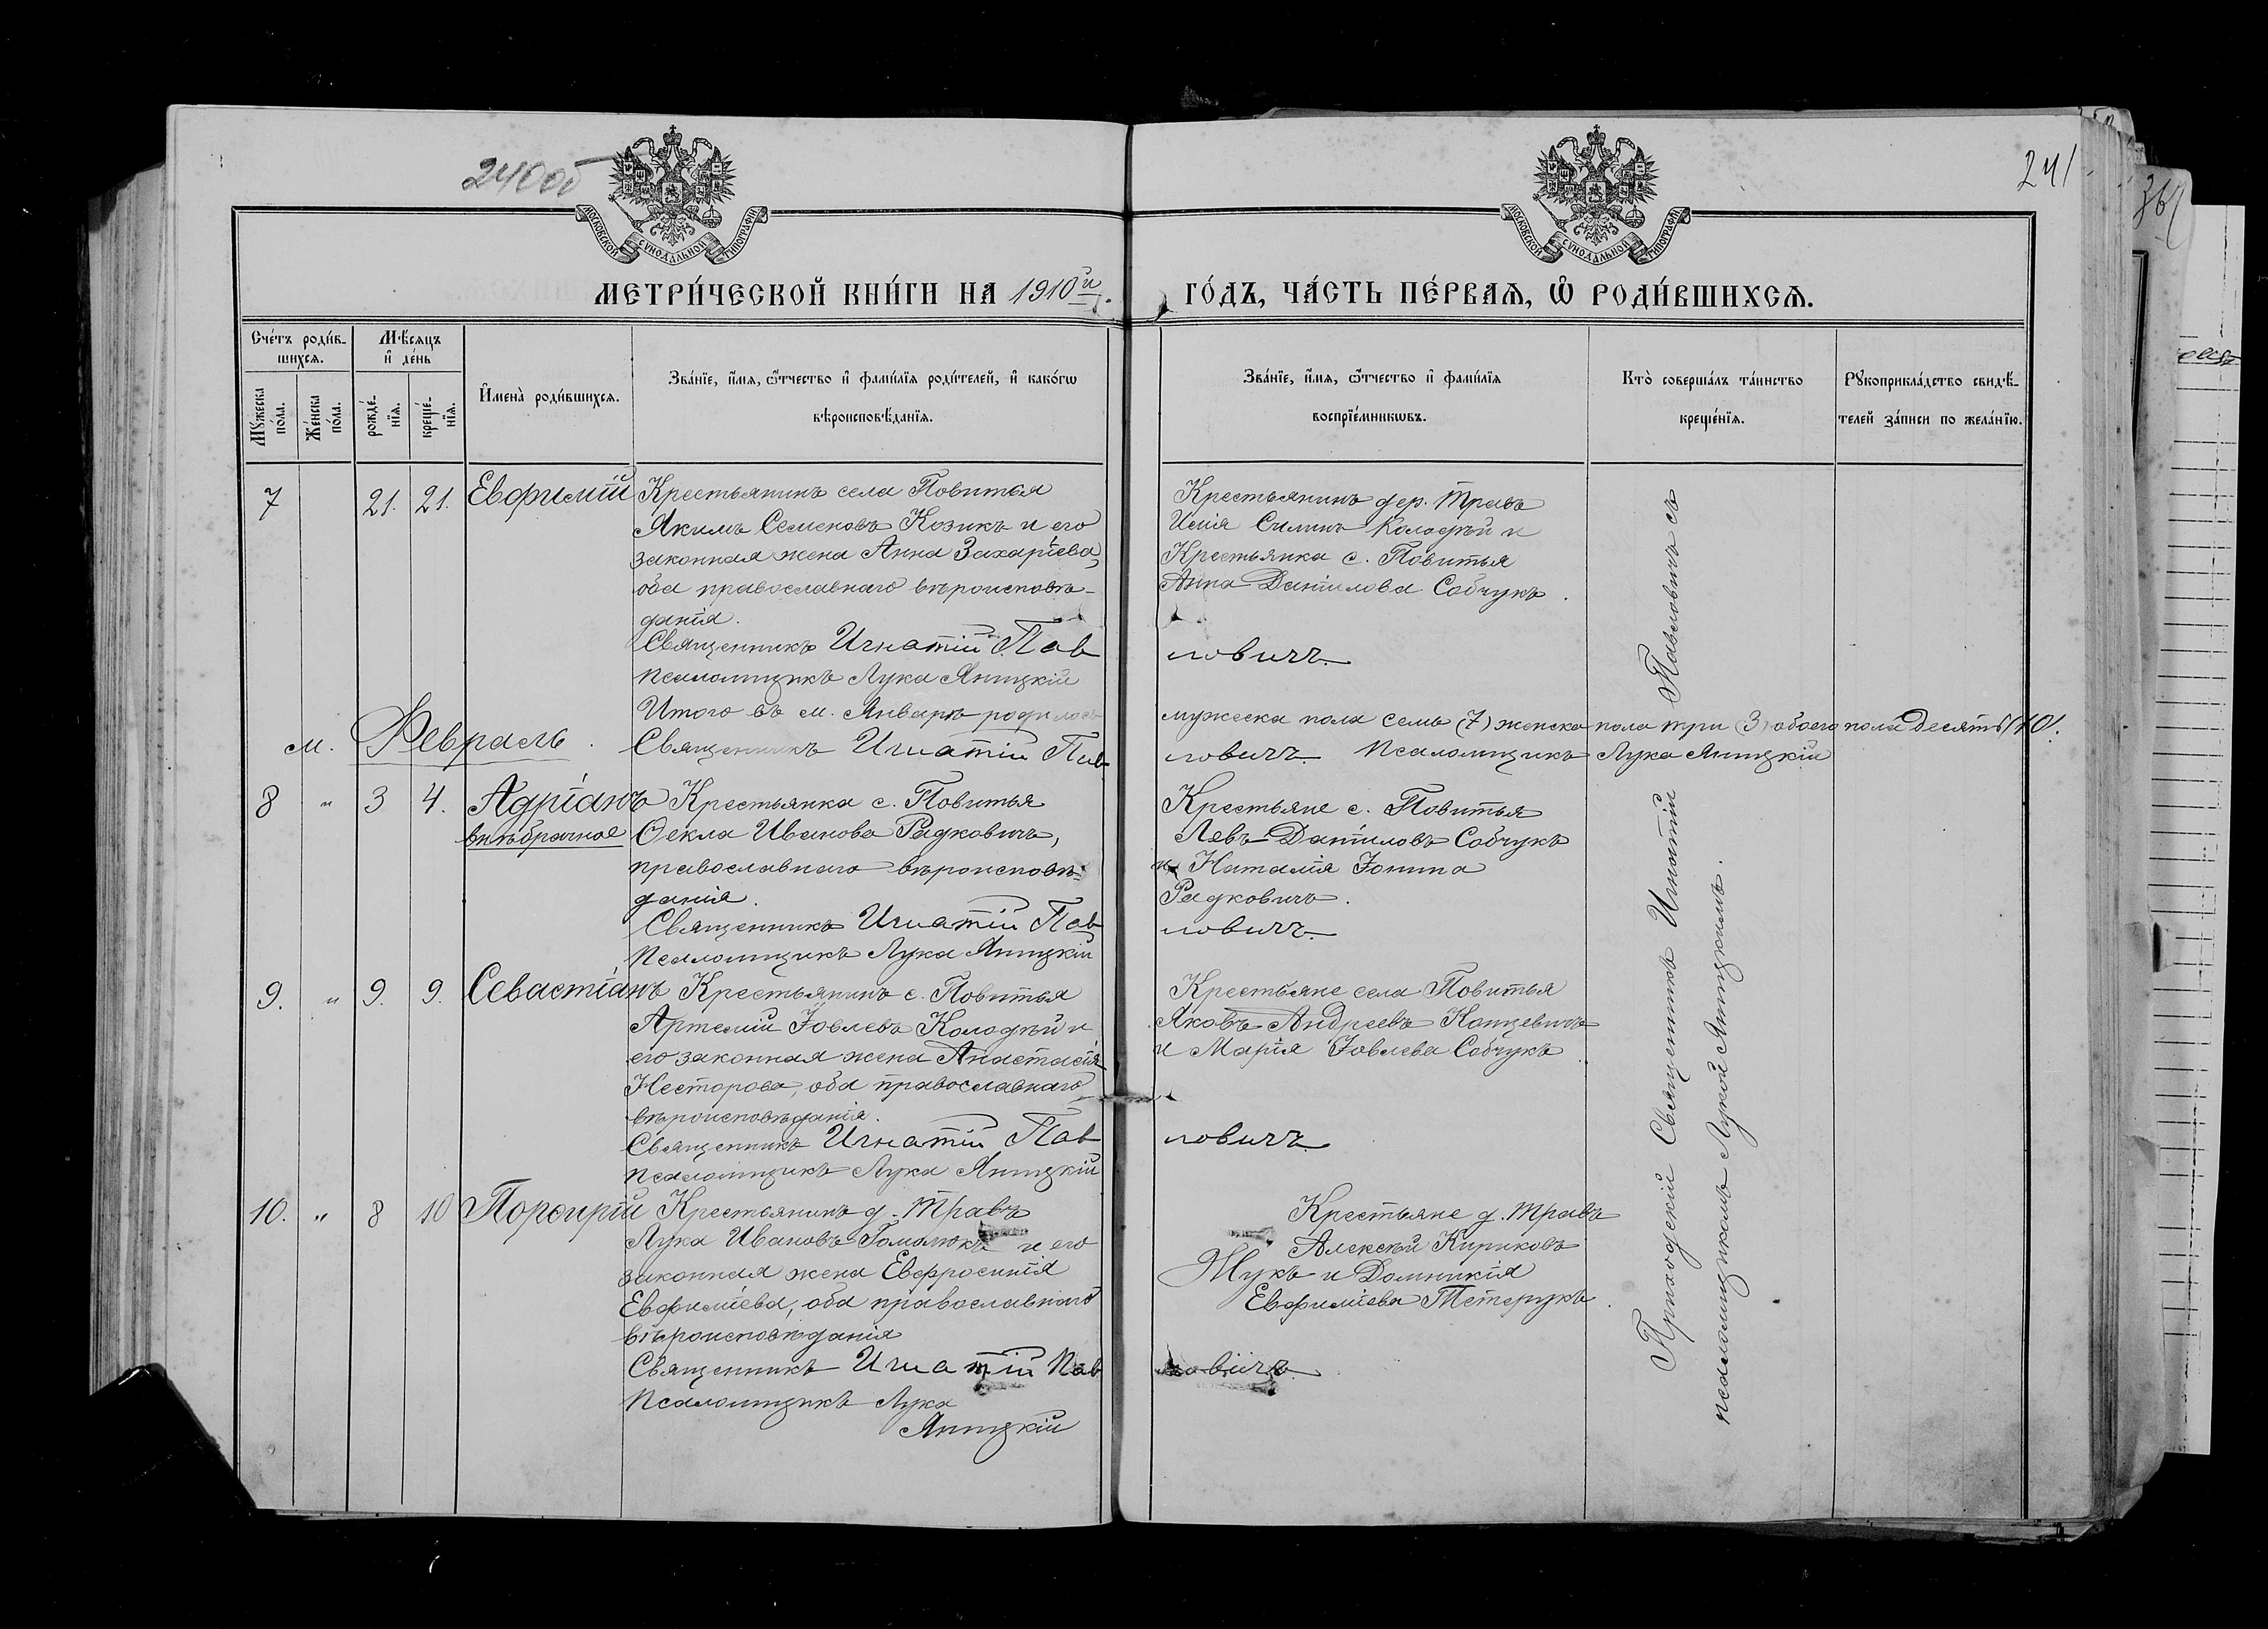 240об
241
361
МОСКОВСКОЙ СѴНОДАЛЬНОЙ ТИПОГРАФІИ
МОСКОВСКОЙ СѴНОДАЛЬНОЙ ТИПОГРАФІИ
МЕТРИ́ЧЕСКОЙ КНИ́ГИ НА 1910й.
ГО́ДЪ, ЧА́СТЬ ПЕ́РВАѦ, Ѡ҆ РОДИ́ВШИХСѦ.
Сче́тъ роди́в-
шихсѧ.
Мꙋ́жеска
по́ла.
Же́нска
по́ла.
Мѣ́сѧцъ
и҆ де́нь
рожде́-
нїѧ.
креще́-
нїѧ.
И҆мена̀ роди́вшихсѧ.
Зва́нїе, и҆́мѧ, ѻ҆́тчество и҆ фами́лїѧ роди́телей, и҆ како́гѡ
вѣроисповѣ́данїѧ.
Зва́нїе, и҆́мѧ, ѻ҆́тчество и҆ фами́лїѧ
воспрїе́мникѡвъ.
Кто̀ соверша́лъ та́инство
креще́нїѧ.
Рꙋкоприкла́дство свидѣ́-
телей за́писи по жела́нїю.
7 21. 21. Евфимій
Крестьянинъ села Повитья
Якимъ Семеновъ Козикъ и его
законная жена Анна Захаріева,
оба православнаго вѣроисповѣ-
данія.
Священникъ Игнатій Пав
Псаломщикъ Лука Яницкій
Крестьянинъ дер. Травъ
Илія Силинъ Колодѣй и
Крестьянка с. Повитья
Анна Даніилова Собчукъ.
ловичъ.
Итого въ м. Январѣ родилось мужеска пола семь (7) женска пола три (3) обоего пола десять (10).
м. Февраль.
Священникъ Игнатій Пав
ловичъ. Псаломщикъ Лука Яницкій
8 " 3 4. Адріанъ
внѣбрачное
Крестьянка с. Повитья
Ѳекла Иванова Радковичъ,
православнаго вѣроисповѣ-
данія.
Священникъ Игнатій Пав
Псаломщикъ Лука Яницкій
Крестьяне с. Повитья
Левъ Даніиловъ Собчукъ
и Наталія Іонина
Радковичъ.
ловичъ.
9. " 9. 9. Севастіанъ
Крестьянинъ с. Повитья
Артемій Іовлевъ Колодѣй и
его законная жена Анастасія
Несторова, оба православнаго
вѣроисповѣданія.
Священникъ Игнатій Пав
Псаломщикъ Лука Яницкій
Крестьяне села Повитья
Яковъ Андреевъ Концевичъ
и Марія Іовлева Собчукъ.
ловичъ.
10. " 8 10 Порфирій
Крестьянинъ д. Травъ
Лука Ивановъ Гомолюкъ и его
законная жена Евфросинія
Евфиміева, оба православнаго
вѣроисповѣданія
Священникъ Игнатій Пав
Псаломщикъ Лука
Яницкій
Крестьяне д. Травъ
Алексѣй Кириковъ
Жукъ и Домникія
Евфиміева Тетерукъ.
ловичъ.
Приходскій Священникъ Игнатій Павловичъ съ
псаломщикомъ Лукой Яницкимъ.